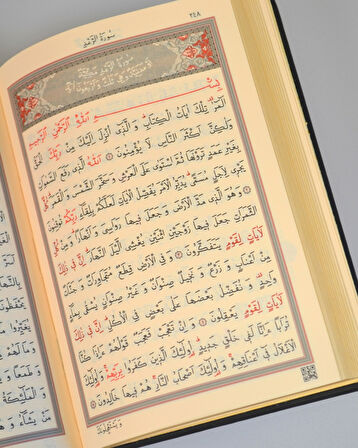 ٢٤٨
سُورَةُ الرَّعْدِ
سورة الرعد مدنية
بِسْمِ اللّٰهِ الرَّحْمٰنِ الرَّحِيمِ
الٓمٓرٰ تِلْكَ اٰيَاتُ الْكِتَابِ وَالَّذِٓي اُنْزِلَ اِلَيْكَ مِنْ رَبِّكَ الْحَقُّ
وَلٰكِنَّ اَكْثَرَ النَّاسِ لَا يُؤْمِنُونَ ۝١ اَللّٰهُ الَّذِي رَفَعَ السَّمٰوَاتِ
بِغَيْرِ عَمَدٍ تَرَوْنَهَا ثُمَّ اسْتَوٰى عَلَى الْعَرْشِ وَسَخَّرَ الشَّمْسَ وَالْقَمَرَ كُلٌّ
يَجْرِي لِاَجَلٍ مُسَمًّى يُدَبِّرُ الْاَمْرَ يُفَصِّلُ الْاٰيَاتِ لَعَلَّكُمْ بِلِقَٓاءِ رَبِّكُمْ تُوقِنُونَ
۝٢ وَهُوَ الَّذِي مَدَّ الْاَرْضَ وَجَعَلَ فِيهَا رَوَاسِيَ وَاَنْهَارًا وَمِنْ كُلِّ
الثَّمَرَاتِ جَعَلَ فِيهَا زَوْجَيْنِ اثْنَيْنِ يُغْشِي الَّيْلَ النَّهَارَ اِنَّ فِي ذٰلِكَ
لَاٰيَاتٍ لِقَوْمٍ يَتَفَكَّرُونَ ۝٣ وَفِي الْاَرْضِ قِطَعٌ مُتَجَاوِرَاتٌ وَجَنَّاتٌ
مِنْ اَعْنَابٍ وَزَرْعٌ وَنَخِيلٌ صِنْوَانٌ وَغَيْرُ صِنْوَانٍ يُسْقٰى بِمَٓاءٍ
وَاحِدٍ وَنُفَضِّلُ بَعْضَهَا عَلٰى بَعْضٍ فِي الْاُكُلِ اِنَّ فِي ذٰلِكَ
لَاٰيَاتٍ لِقَوْمٍ يَعْقِلُونَ ۝٤ وَاِنْ تَعْجَبْ فَعَجَبٌ قَوْلُهُمْ ءَاِذَا كُنَّا
تُرَابًا ءَاِنَّا لَفِي خَلْقٍ جَدِيدٍ اُولٰٓئِكَ الَّذِينَ كَفَرُوا بِرَبِّهِمْ وَاُولٰٓئِكَ
الْاَغْلَالُ فِٓي اَعْنَاقِهِمْ وَاُولٰٓئِكَ اَصْحَابُ النَّارِ هُمْ فِيهَا خَالِدُونَ ۝٥
وَيَسْتَعْجِلُونَكَ